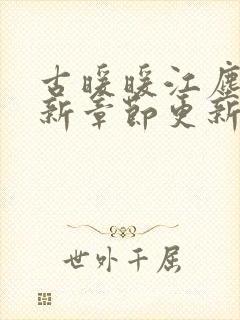 古暖暖江尘
新章节更新
世外千屈